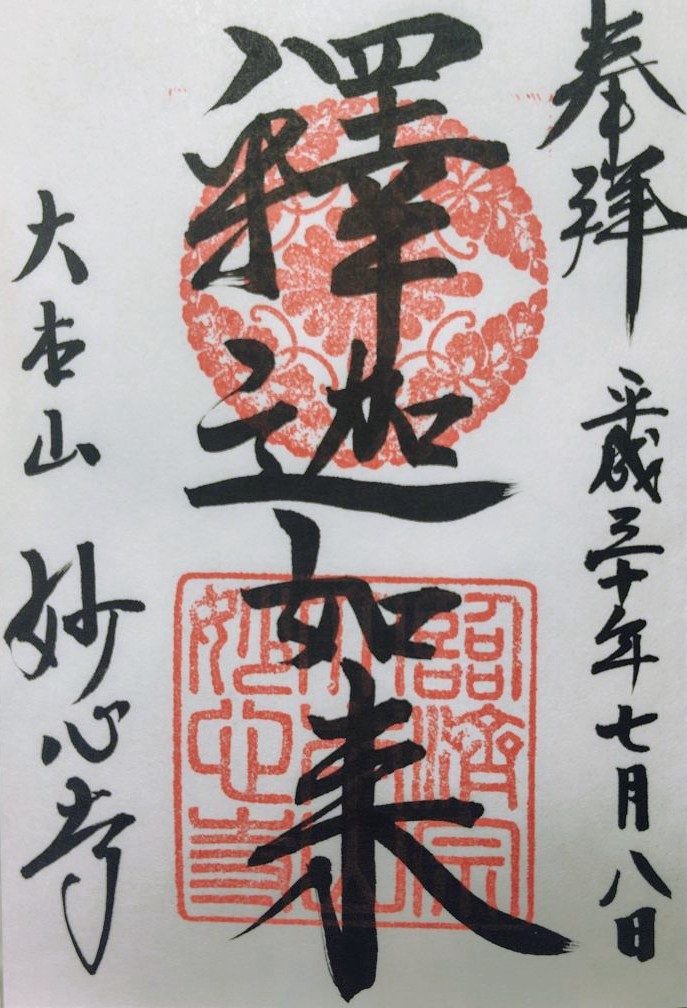 奉拝
平成三十年七月八日
釋迦如来
臨済宗
大本山
妙心寺
大本山
妙心寺